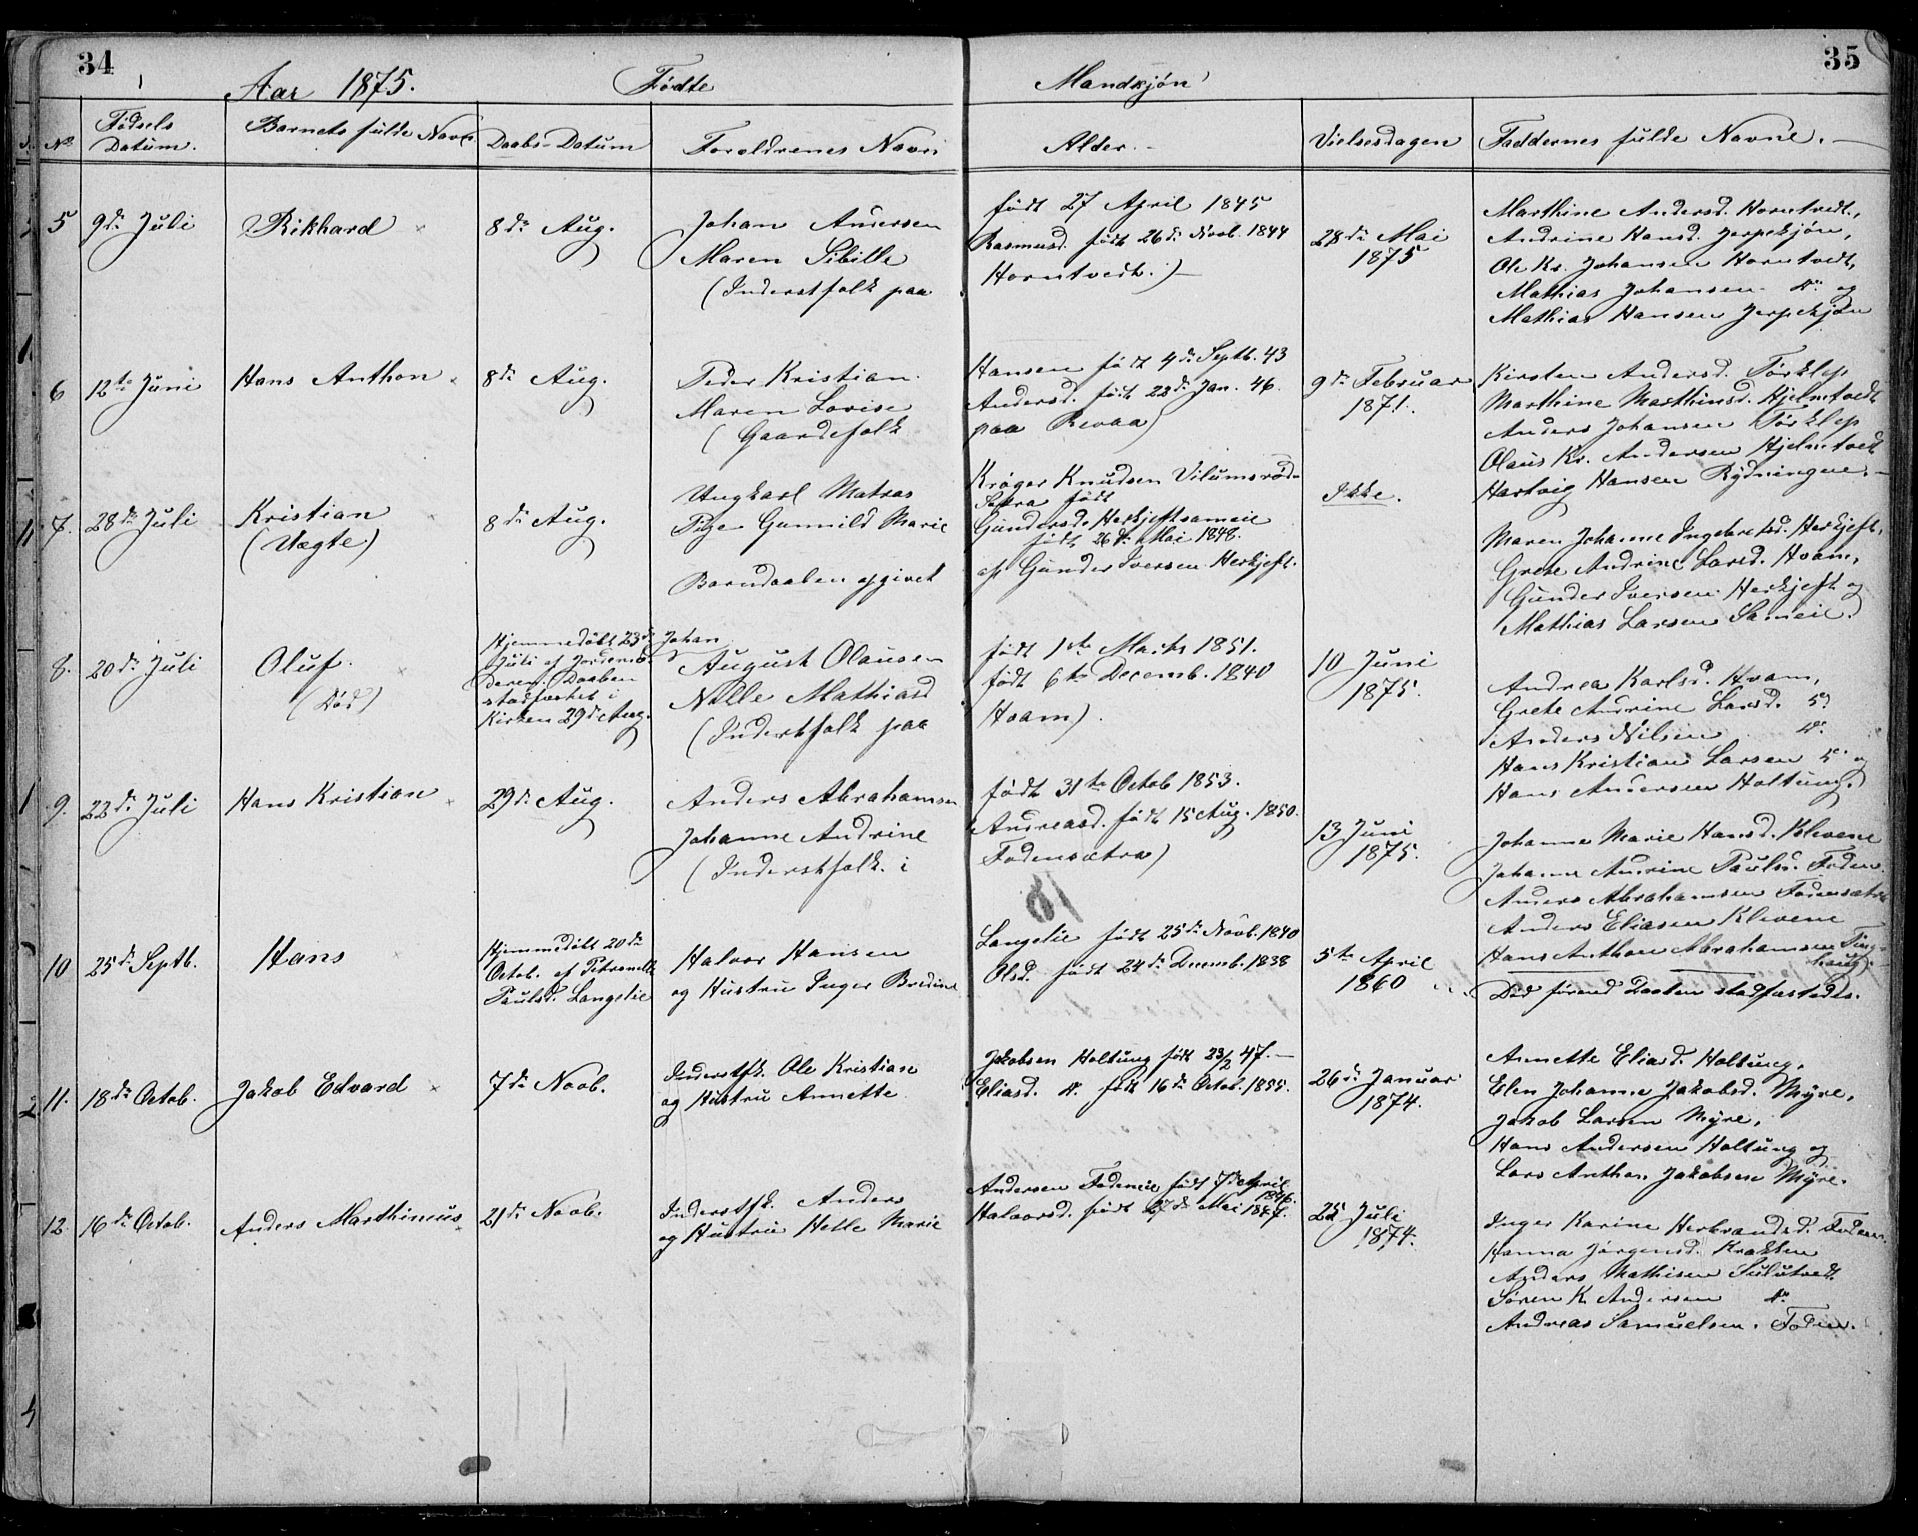 34
35
Aar 1875. Fødte Mandkjøn
No Fødsels Datum. Barnets fulde Navn Daabs-Datum Forældrenes Navn Alder. Vielsesdagen Faddernes fulde Navne.
5 9de Juli Rikhard 8de Aug.
Johan Andersen
Maren Sibille
(Inderstfolk paa
født 27 April 1845
Rasmusd. født 26de Novb. 1844
Horntvedt.)
28de Mai
1875
Marthine Andersd. Horntvedt,
Andrine Hansd. Jerpekjøn,
Ole Kr. Johansen Horntvedt,
Mathias Johansen do og
Mathias Hansen Jerpekjøn
6 12te Juni Hans Anthon 8de Aug.
Peder Kristian
Maren Lovise
(Gaardefolk
Hansen født 4de Septb. 43
Andersd. født 22de Jan. 46.
paa Revaa)
9de Februar
1871.
Kirsten Andersd. Tørklep
Marthine Marthinsd. Hjelmtvedt
Anders Johansen Tørklep
Olaus Kr. Andersen Hjelmtvedt
Hartvig Hansen Rydningen.
7. 28de Juli Kristian
(Uægte)
8de Aug.
Ungkarl Matras
Pige Gunnild Marie
Barndaaben opgivet
Krøger Knudsen Vilumsrød-
Sætra født
Gundersd. Herkjeftsameie
født 26de Mai 1848.
af Gunder Iversen Herkjeft.
Ikke.
Maren Johanne Ingebretsd. Herkjeft,
Grete Andrine Larsd. Hvam,
Gunder Iversen Herkjeft og
Mathias Larsen Sameie.
8. 20de Juli Oluf.
(Død)
Hjemmedøbt 23de
Juli af Jordemo-
deren. Daaben
stadfæstet i
Kirken 29de Aug.
Johan
August Olausen
Nelle Mathiasd
(Inderstfolk paa
født 1ste Marts 1851.
født 6te Decemb. 1840
Hvam).
10 Juni
1875.
Andrea Karlsd. Hvam,
Grete Andrine Larsd. do
Anders Nilsen do
Hans Kristian Larsen do og
Hans Andersen Holtung.
9. 22de Juli Hans Kristian 29de Aug.
Anders Abrahamsen
Johanne Andrine
(Inderstfolk i
født 31te Octob 1853.
Andreasd. født 15 Aug. 1850.
Fodensætra)
13 Juni
1875.
Johanne Marie Hansd. Klevene
Johanne Andrine Paulsd. Foden
Anders Abrahamsen Fodensætra
Anders Eliasen Klevene
Hans Anthon Abrahamsen Ting-
haug.
10 25de Septb. Hans
Hjemmedøbt 20de
Octob. af Petronelle
Paulsd. Langelie
Halvor Hansen
og Hustru Inger Bredine
Langelie født 25de Novb. 1840
Olsd. født 24de Decemb. 1838
5te April
1860
Død førend Daaben stadfæstedes.
11. 18de Octob. Jakob Edvard 7de Novb.
Inderstfk. Ole Kristian
og Hustru Annette
Jakobsen Holtung født 23/2 47.
Eliasd. do født 16de Octob. 1855.
26de Januar
1874.
Annette Eliasd. Holtung,
Elen Johanne Jakobsd. Myre,
Jakob Larsen Myre,
Hans Andersen Holtung og
Lars Anthon Jakobsen Myre.
12. 16de Octob. Anders Marthinius 21de Novb.
Inderstfk. Anders
og Hustru Helle Marie
Andersen Fodeneie født 7de April
1846.
Halvorsd. født 27de Mai 1847.
25 Juli
1874.
Inger Karine Herbrandsd. Foden.
Hanna Jørgensd. Krakken
Anders Mathisen Sulutvedt
Søren K. Andersen do
Andreas Samuelsen. Foden.